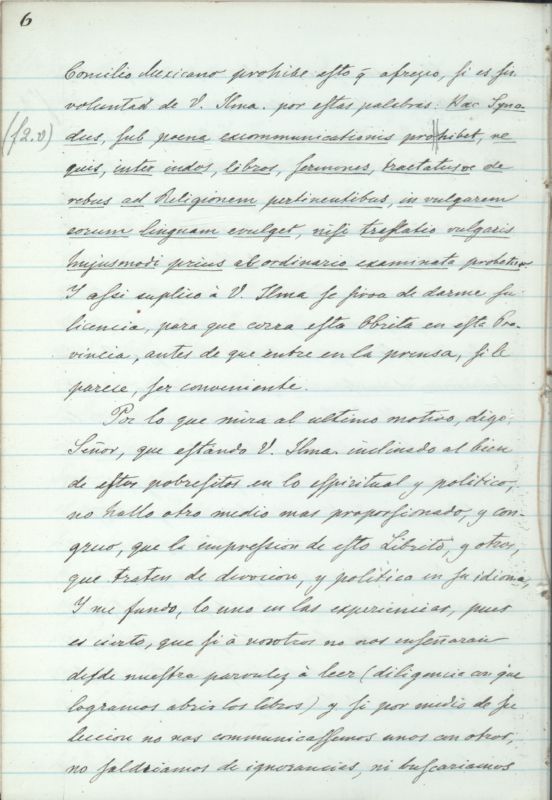 6
Concilio Mexicano prohibe esto q̃ afresio, si es su
voluntad de V. Ilma. por estas palabras: Hac Syno-
(f2.v)
dus, sub poena excommunicationis prohibet, ne
quis, inter indos, libros, sermones, tractatusve de
rebus ad Religionem pertinentibus, in vulgarem
eorum linguam evulget, nisi traslatio vulgaris
hujusmodi prius ab ordinario examinata probetur.
Y assi suplico à V. Ilma se sirva de darme su
licencia, para que corra esta Obrita en esta Pro-
vincia, antes de que entre en la prensa, si le
parese, ser conveniente.
Por lo que mira al ultimo motivo, digo,
Señor, que estando V. Ilma. inclinado al bien
de estos pobresitos en lo espiritual y politico,
no hallo otro medio mas proporsionado, y con-
gruo, que la impression de esto Librito, y otros,
que traten de devocion, y politica en su idioma,
Y me fundo, lo uno en las experiencias, pues
es cierto, que si à nosotros no nos enseñaran
desde nuestra parvulez à leer (diligencia con que
logramos abrir los libros) y si por medio de su
leccion no nos communicassemos unos con otros,
no saldriamos de ignorancias, ni buscariamos